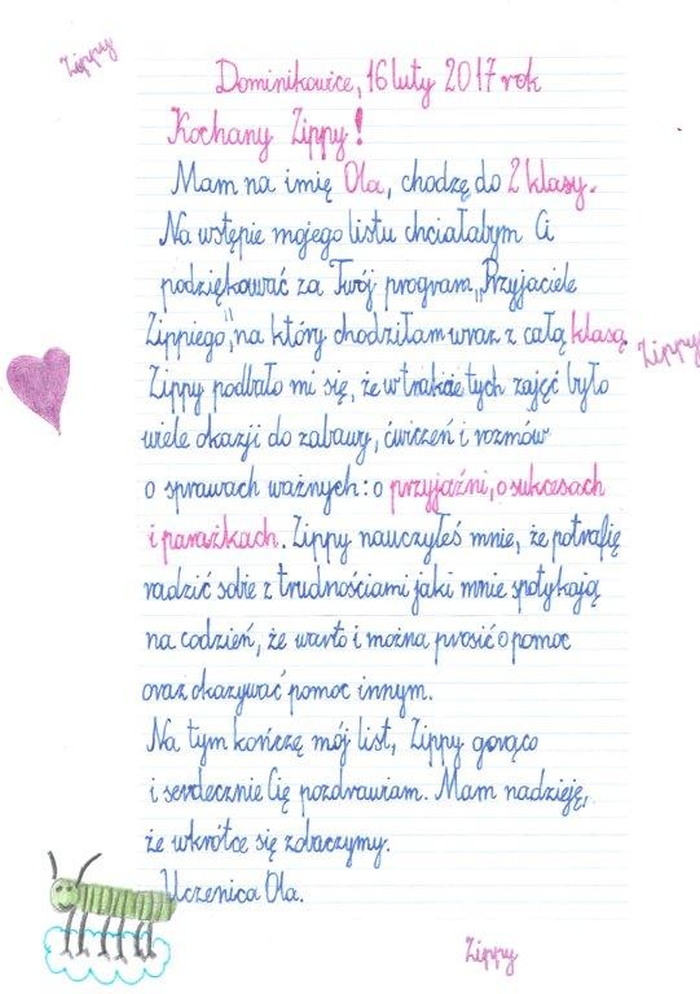 Zippy
Dominikowice, 16 luty 2017 rok
Kochany Zippy!
Mam na imię Ola, chodzę do 2 klasy.
Na wstępie mojego listu chciałabym Ci
podziękować za Twój program „Przyjaciele
Zippiego", na który chodziłam wraz z całą klasą.
Zippy
Zippy podbało mi się, że w trakcie tych zajęć było
wiele okazji do zabawy, ćwiczeń i rozmów
o sprawach ważnych: o przyjaźni, o sukcesach
i porażkach. Zippy nauczyłeś mnie, że potrafię
radzić sobie z trudnościami jaki mnie spotykają
na codzień, że warto i można prosić o pomoc
oraz okazywać pomoc innym.
Na tym kończę mój list, Zippy gorąco
i serdecznie Cię pozdrawiam. Mam nadzieję,
że wkrótce się zobaczymy.
Uczenica Ola.
Zippy